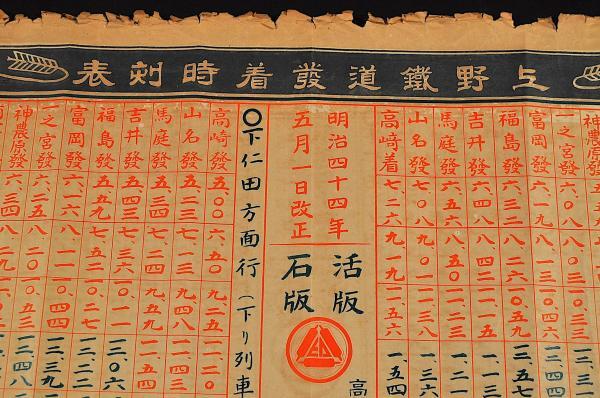 上野鐵道發着時刻表
一之宮發 六、〇八 八、〇三
富岡發 六、一九 八、一三
福島發 六、三二 八、二六 一〇、五九
吉井發 六、四八 八、四二
馬庭發 六、五八 八、五〇 一一、二三 一、二一
山名發 七、〇八 九、〇〇 一、三六
高崎着 七、二六 九、一九 一一、五六 一、五四
明治四十四年
五月一日改正
活版
石版
高
〇下仁田方面行（下り列車
高崎發 五、〇〇 六、五〇 九、二五 一一、二〇
山名發 五、二三 七、一三 九、四八 一一、四三
馬庭發 五、三四 七、二五 九、五九 一一、五四
吉井發 五、四五 七、三六 一〇、一一 一二、〇六
福島發 五、五九 七、五二 一〇、二七 一二、二二
富岡發 六、一六 一〇、四四 一二、三九
一之宮發 六、二五 八、二〇 一〇、五三 一二、四八
神農原發 六、三四 八、二九